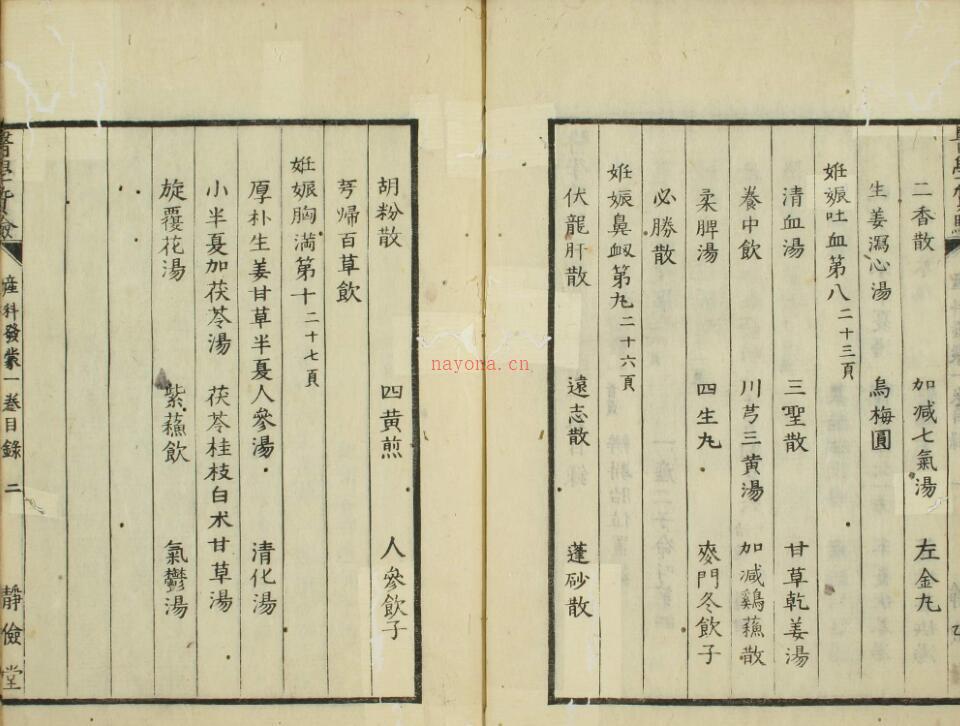 二香散　加減七氣湯　左金丸
生姜瀉心湯　烏梅圓
妊娠吐血第八 二十三頁
清血湯　三聖散　甘草乾姜湯
養中飲　川芎三黄湯　加減鷄蘓散
柔脾湯　四生丸　麥門冬飲子
必勝散
妊娠鼻衂第九 二十六頁
伏龍肝散　遠志散　蓬砂散
胡粉散　四黄煎　人參飲子
芎歸百草飲
妊娠胸満第十 二十七頁
厚朴生姜甘草半夏人參湯　清化湯
小半夏加茯苓湯　茯苓桂枝白术甘草湯
旋覆花湯　紫蘓飲　氣鬱湯
産科發蒙一卷目錄　二　靜儉堂
nayona.cn